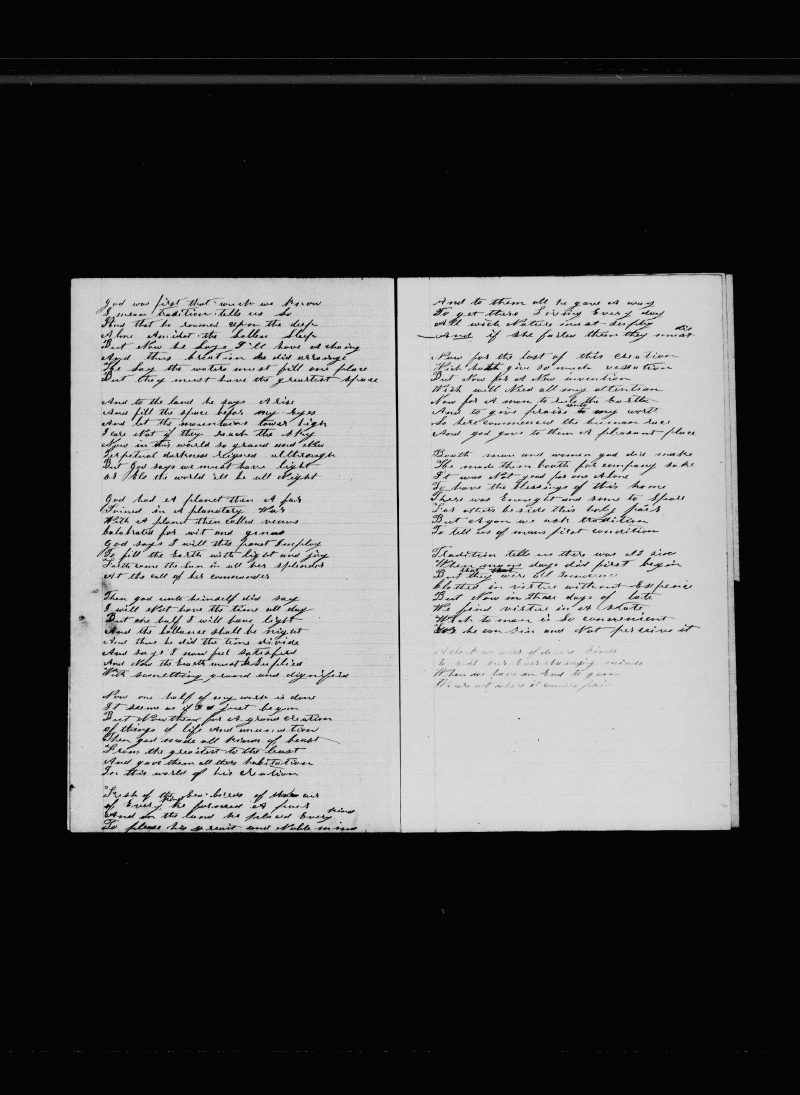 God was first that which we know
I mean tradition tells us so
And that he roamed upon the deep
Alone Amidst the Sollen Sleep
But Now he Says I'll have A change
And thus Creation he did arrange
He Say the waters must fill one place
But they must have the greatest space
And to the land he says Arise
And fill the space befor my Eyes
And let the mountains tower high
I care Not if they reach the sky
Now in this world so grand and New
Perpetual darkness Reigned all through
But God says we must have light
or Els the world ill be all Night
God had A planet then A far
Joined in A planetary War
With A planet then called venus
Celebrated for wit and genus
God says I will this planet Imploy
To fill the Earth with light and joy
Forth come the Sun in all her splendor
At the call of her commander
Then god unto himself did say
I will Not have the time all day
But one half I will have light
And the ballance shall be night
And thus he did the time divide
And says I now feel Satisfied
And Now the Earth must be Supplied
With something grand and dignified
Now one half of my work is done
It seems as if I just begun
But Now then for A grand creation
of things of life And
Then god made all kinds of beast
From the greatest to the least
And gave them all there habitation
In this world of his creation
Fish of the Sea birds of the air
of Every kind he formed A pair
And on the land he placed Every kind
To please his great and Noble mind
And to them all he gave A way
To get there Living Every day
All wich Nature must Suply
And if She failes then they must die
Now for the last of this Creation
Wich hath give so much vexation
But Now for A New invention
Wich will Need all my attention
Now for A man to rule the Earth
And to give praise unto my worth
So here commenced the human race
And god gave to them A pleasant place
Booth man and woman god did make
He made them booth for company sake
It was Not good for one Alone
To have the blessings of this home
There was Enought and some to Spare
For others beside this holy pair
But Again we ask tradition
To tell us of mans first condition
Tradition tells us there was No sin
When mans days did first begin
But they were all Innocence
Clothed in virtue without Expence
But Now in these days of late
We find virtue in A State
Wich to man is So convenient
he can Sin and Not perceive it
of divers kinds
to suit our Ever changing minds
When we have an End to gain
We care not where it causes pain